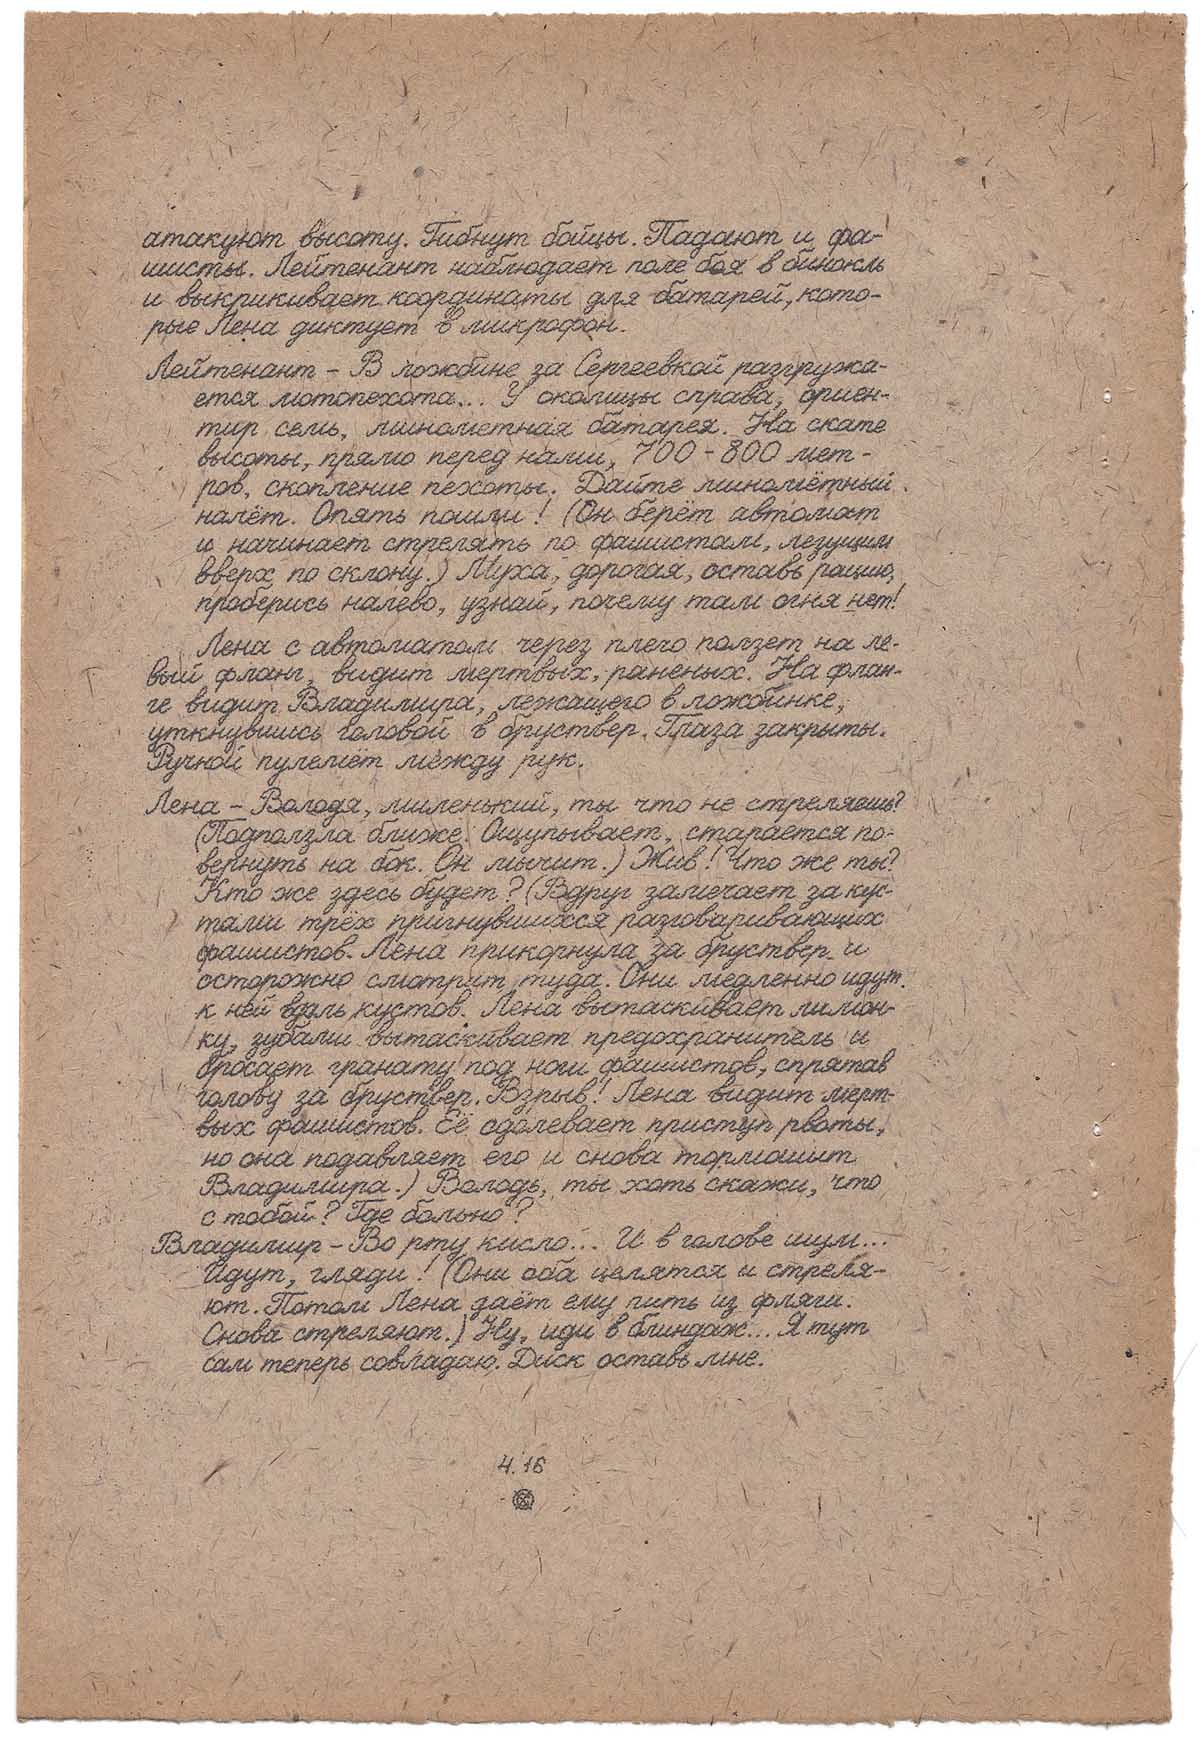 атакуют высоту. Гибнут бойцы. Падают и фа-
шисты. Лейтенант наблюдает поле боя в бинокль
и выкрикивает координаты для батарей, кото-
рые Лена диктует в микрофон.
Лейтенант – В ложбине за Сергеевкой разгружа-
ется мотопехота... У околицы справа, ориен-
тир семь, миномётная батарея. На скате
высоты, прямо перед нами, 700 – 800 мет-
ров, скопление пехоты. Дайте миномётный
налёт. Опять пошли! (Он берёт автомат
и начинает стрелять по фашистам, лезущим
вверх по склону.) Муха, дорогая, оставь рацию,
проберись налево, узнай, почему там огня нет!
Лена с автоматом через плечо ползет на ле-
вый фланг, видит мертвых, раненых. На флан-
ге видит Владимира, лежащего в ложбинке,
уткнувшись головой в бруствер. Глаза закрыты.
Ручной пулемёт между рук.
Лена – Володя, миленький, ты что не стреляешь?
(Подползла ближе. Ощупывает, старается по-
вернуть на бок. Он мычит.) Жив! Что же ты?
Кто же здесь будет? (Вдруг замечает за кус-
тами трёх пригнувшихся разговаривающих
фашистов. Лена прикорнула за бруствер и
осторожно смотрит туда. Они медленно идут
к ней вдоль кустов. Лена вытаскивает лимон-
ку, зубами вытаскивает предохранитель и
бросает гранату под ноги фашистов, спрятав
голову за бруствер. Взрыв! Лена видит мерт-
вых фашистов. Её одолевает приступ рвоты,
но она подавляет его и снова тормошит
Владимира.) Володь, ты хоть скажи, что
с тобой? Где больно?
Владимир – Во рту кисло... И в голове шум...
Идут, гляди! (Они оба целятся и стреля-
ют. Потом Лена даёт ему пить из фляги.
Снова стреляют.) Ну, иди в блиндаж... Я тут
сам теперь совладаю. Диск оставь мне.
4.16